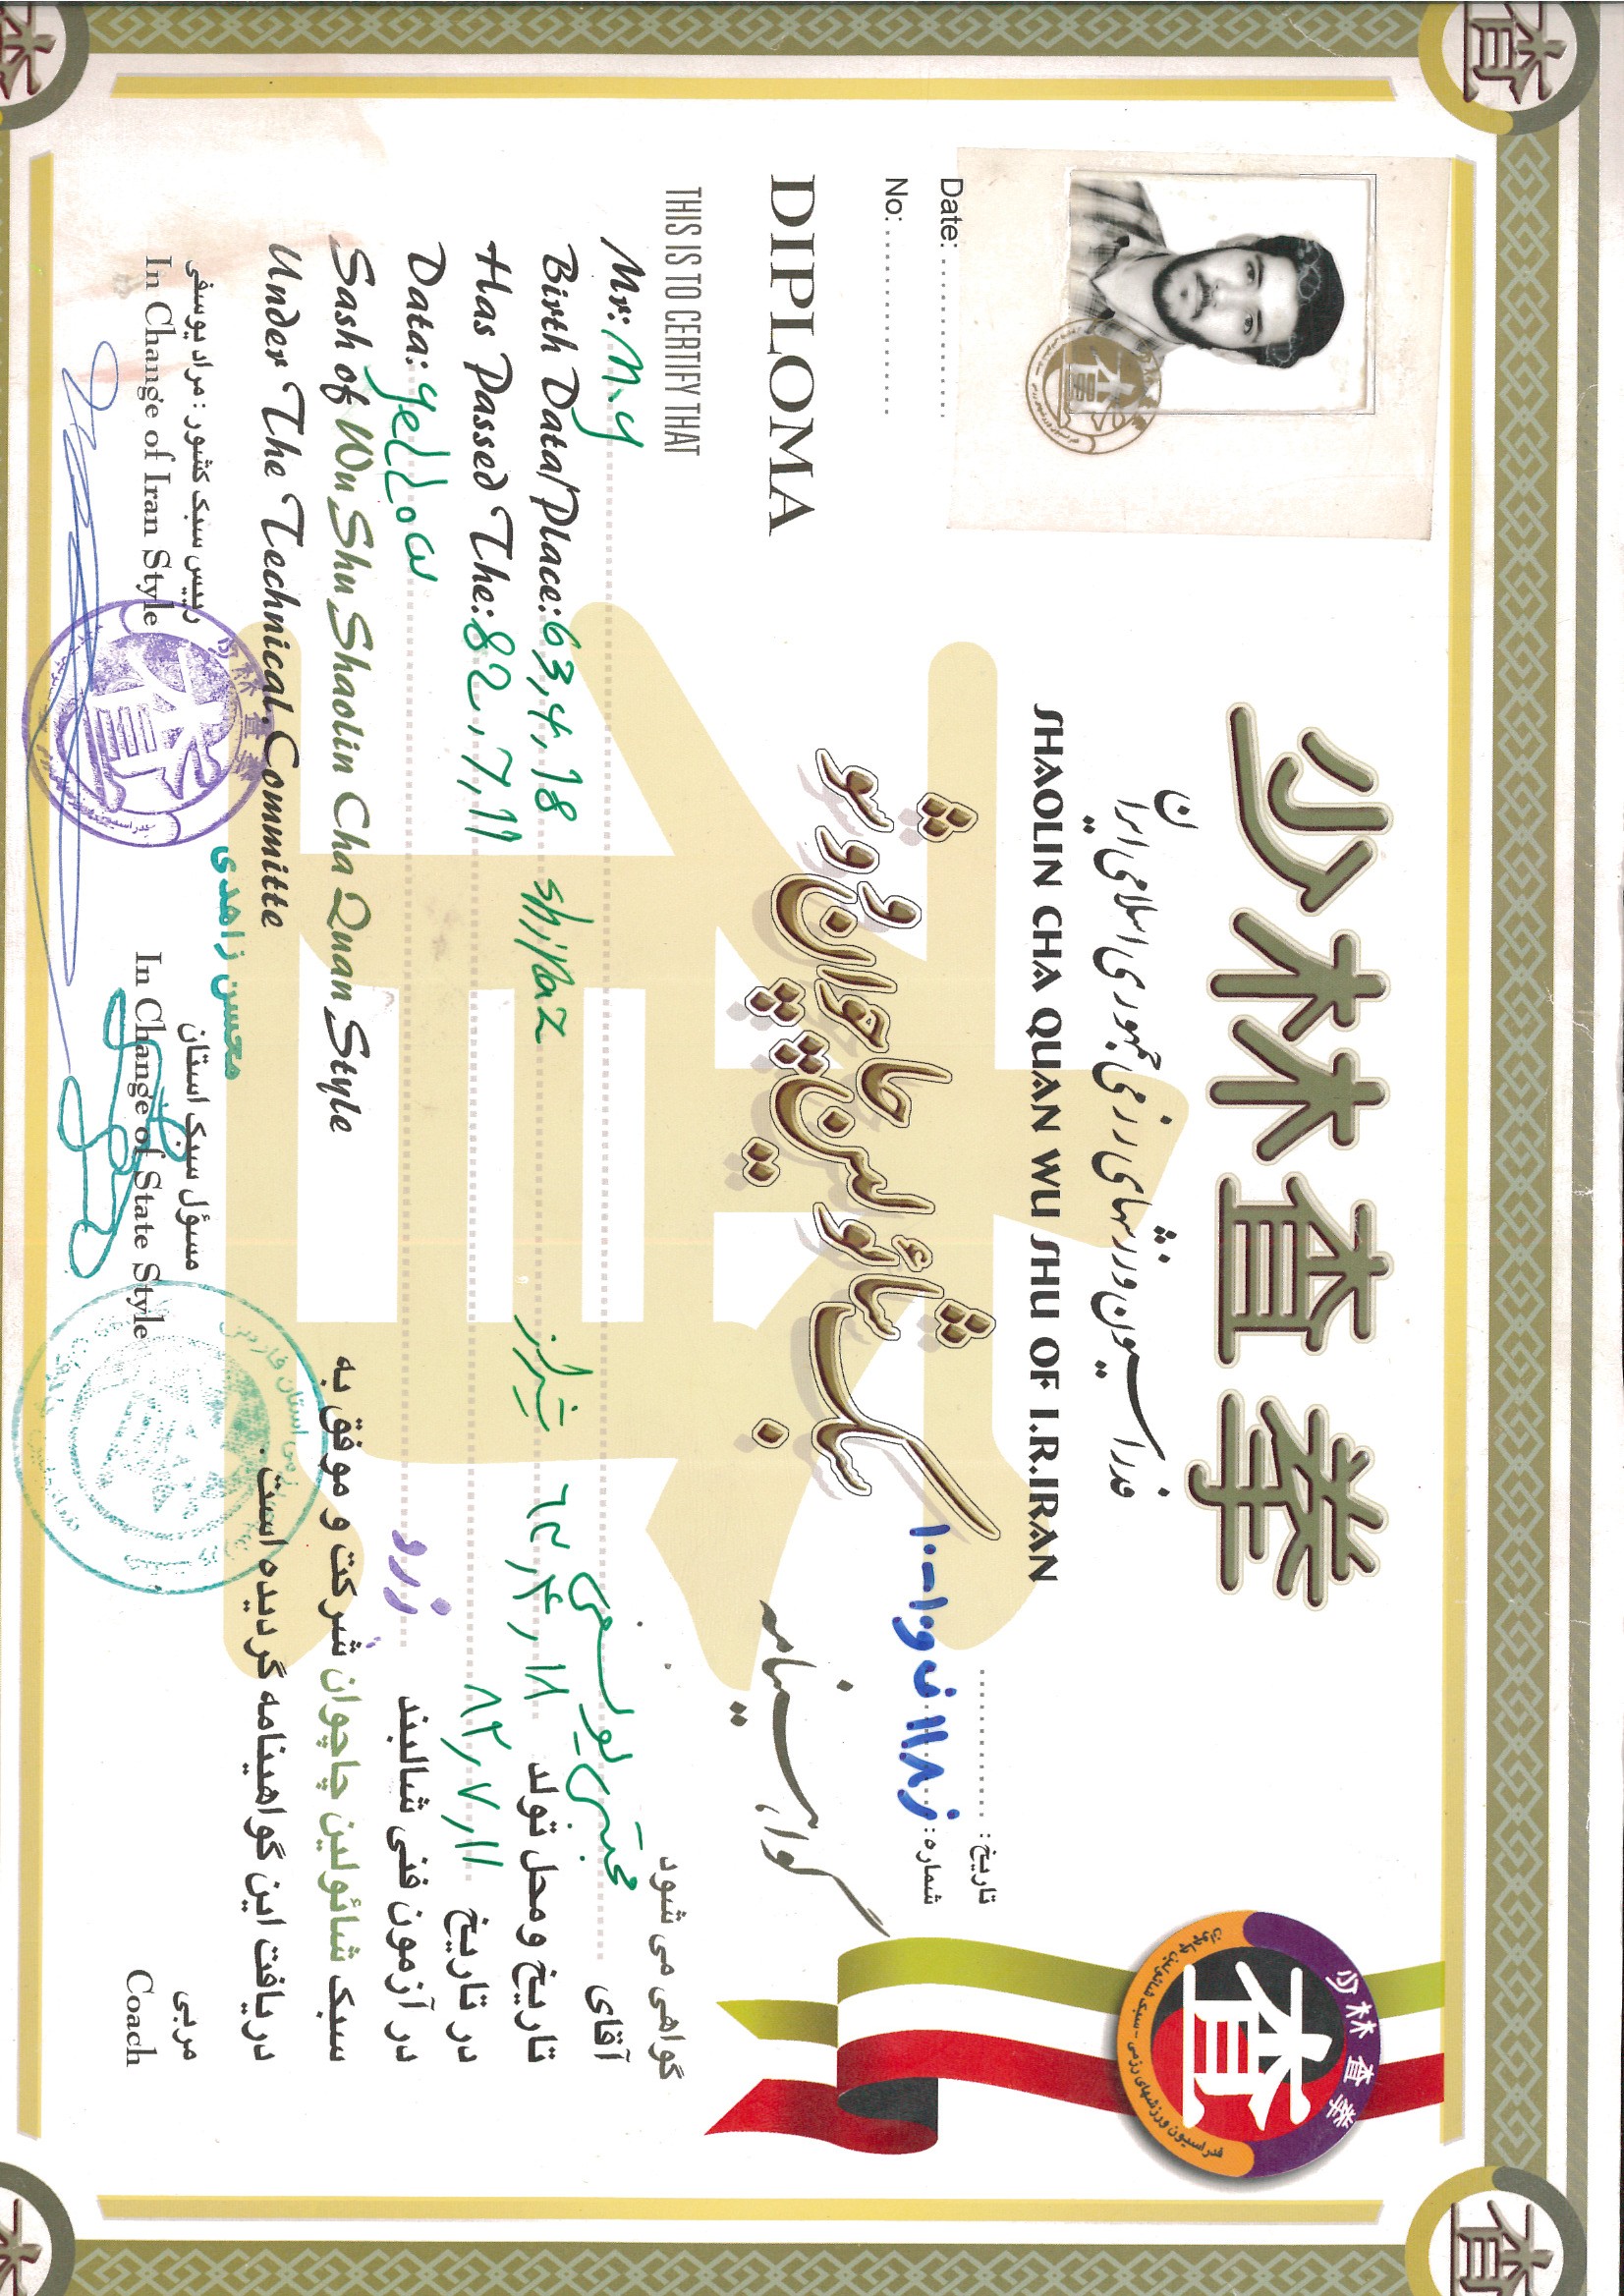 少林查拳
فدراسیون ورزشهای رزمی جمهوری اسلامی ایران
SHAOLIN CHA QUAN WU SHU OF I.R.IRAN
سبک شائولین چاچوان ووشو
Date: ....................
No: ....................
تاریخ : ....................
شماره :
DIPLOMA
گواهینامه
THIS IS TO CERTIFY THAT
Mr: M.y
Birth Data/Place: 63,4,18 shiraz
Has Passed The: 82,7,11
Data: yellow
Sash of Wu Shu Shaolin Cha Quan Style
Under The Technical. Committe
گواهی می شود
آقای مجتبی یوسفی
تاریخ و محل تولد ۶۳٫۴٫۱۸ شیراز
در تاریخ ۸۲٫۷٫۱۱
در آزمون فنی شالبند زرد
سبک شائولین چاچوان شرکت و موفق به
دریافت این گواهینامه گردیده است.
رییس سبک کشور : مراد یوسفی
In Change of Iran Style
محسن زاهدی
مسؤل سبک استان
In Change of State Style
مربی
Coach
少林查拳
查
فدراسیون ورزشهای رزمی - سبک شائولین چاچوان